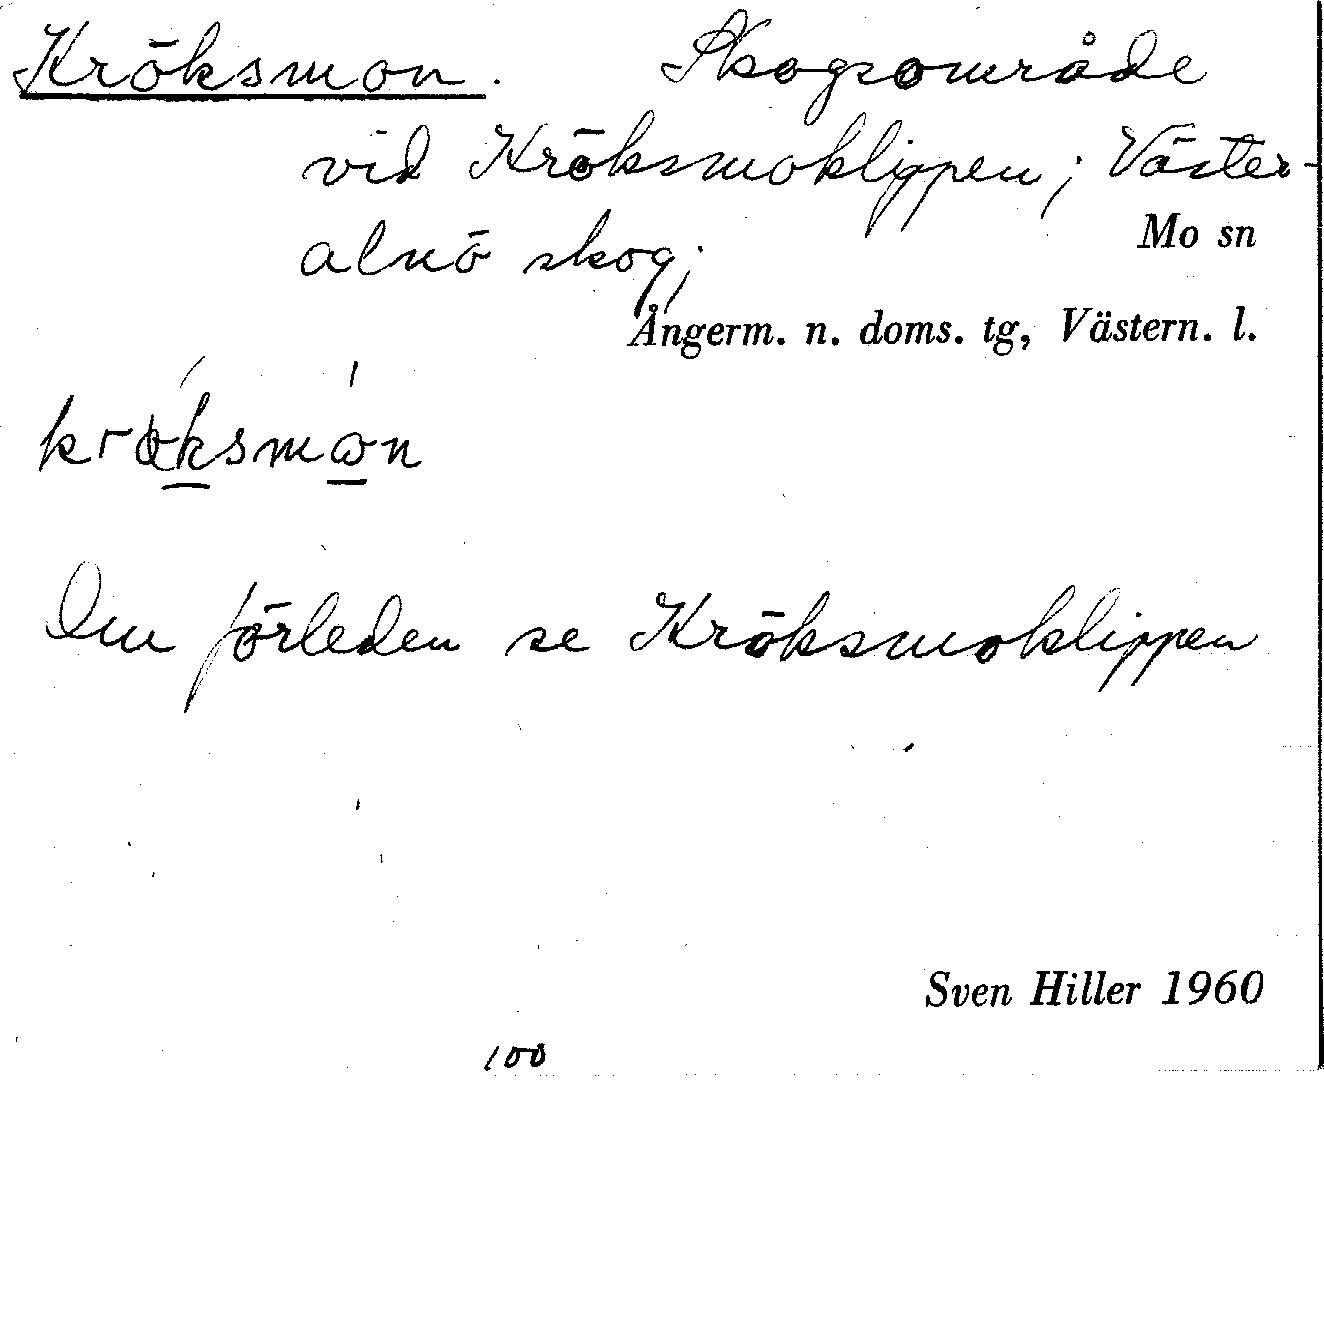 Kröksmon. Skogsområde
vid Kröksmoklippen; Väster-
alnö skog;
Mo sn
Ångerm. n. doms. tg, Västern. l.
Om förleden se Kröksmoklippen
Sven Hiller 1960
100